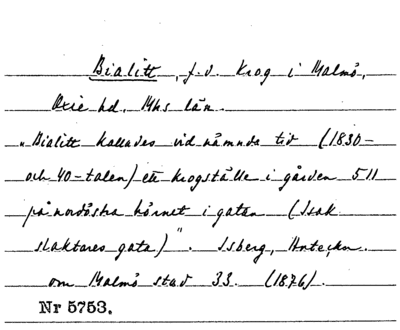 Bialitt, f.d. krog i Malmö,
Oxie hd, Mhs län.
"Bialitt kallades vid nämnda tid (1830-
och 40-talen) ett krogställe i gården 511
på nordöstra hörnet i gatan (Isak
slaktares gata)". Isberg, Anteckn.
om Malmö stad 33. (1876).
Nr 5753.